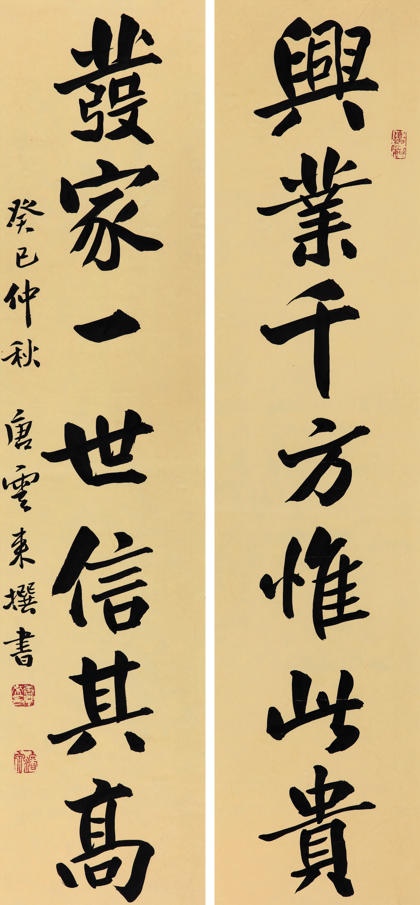 興業千方惟此貴
發家一世信其高
癸巳仲秋 唐雲來撰書